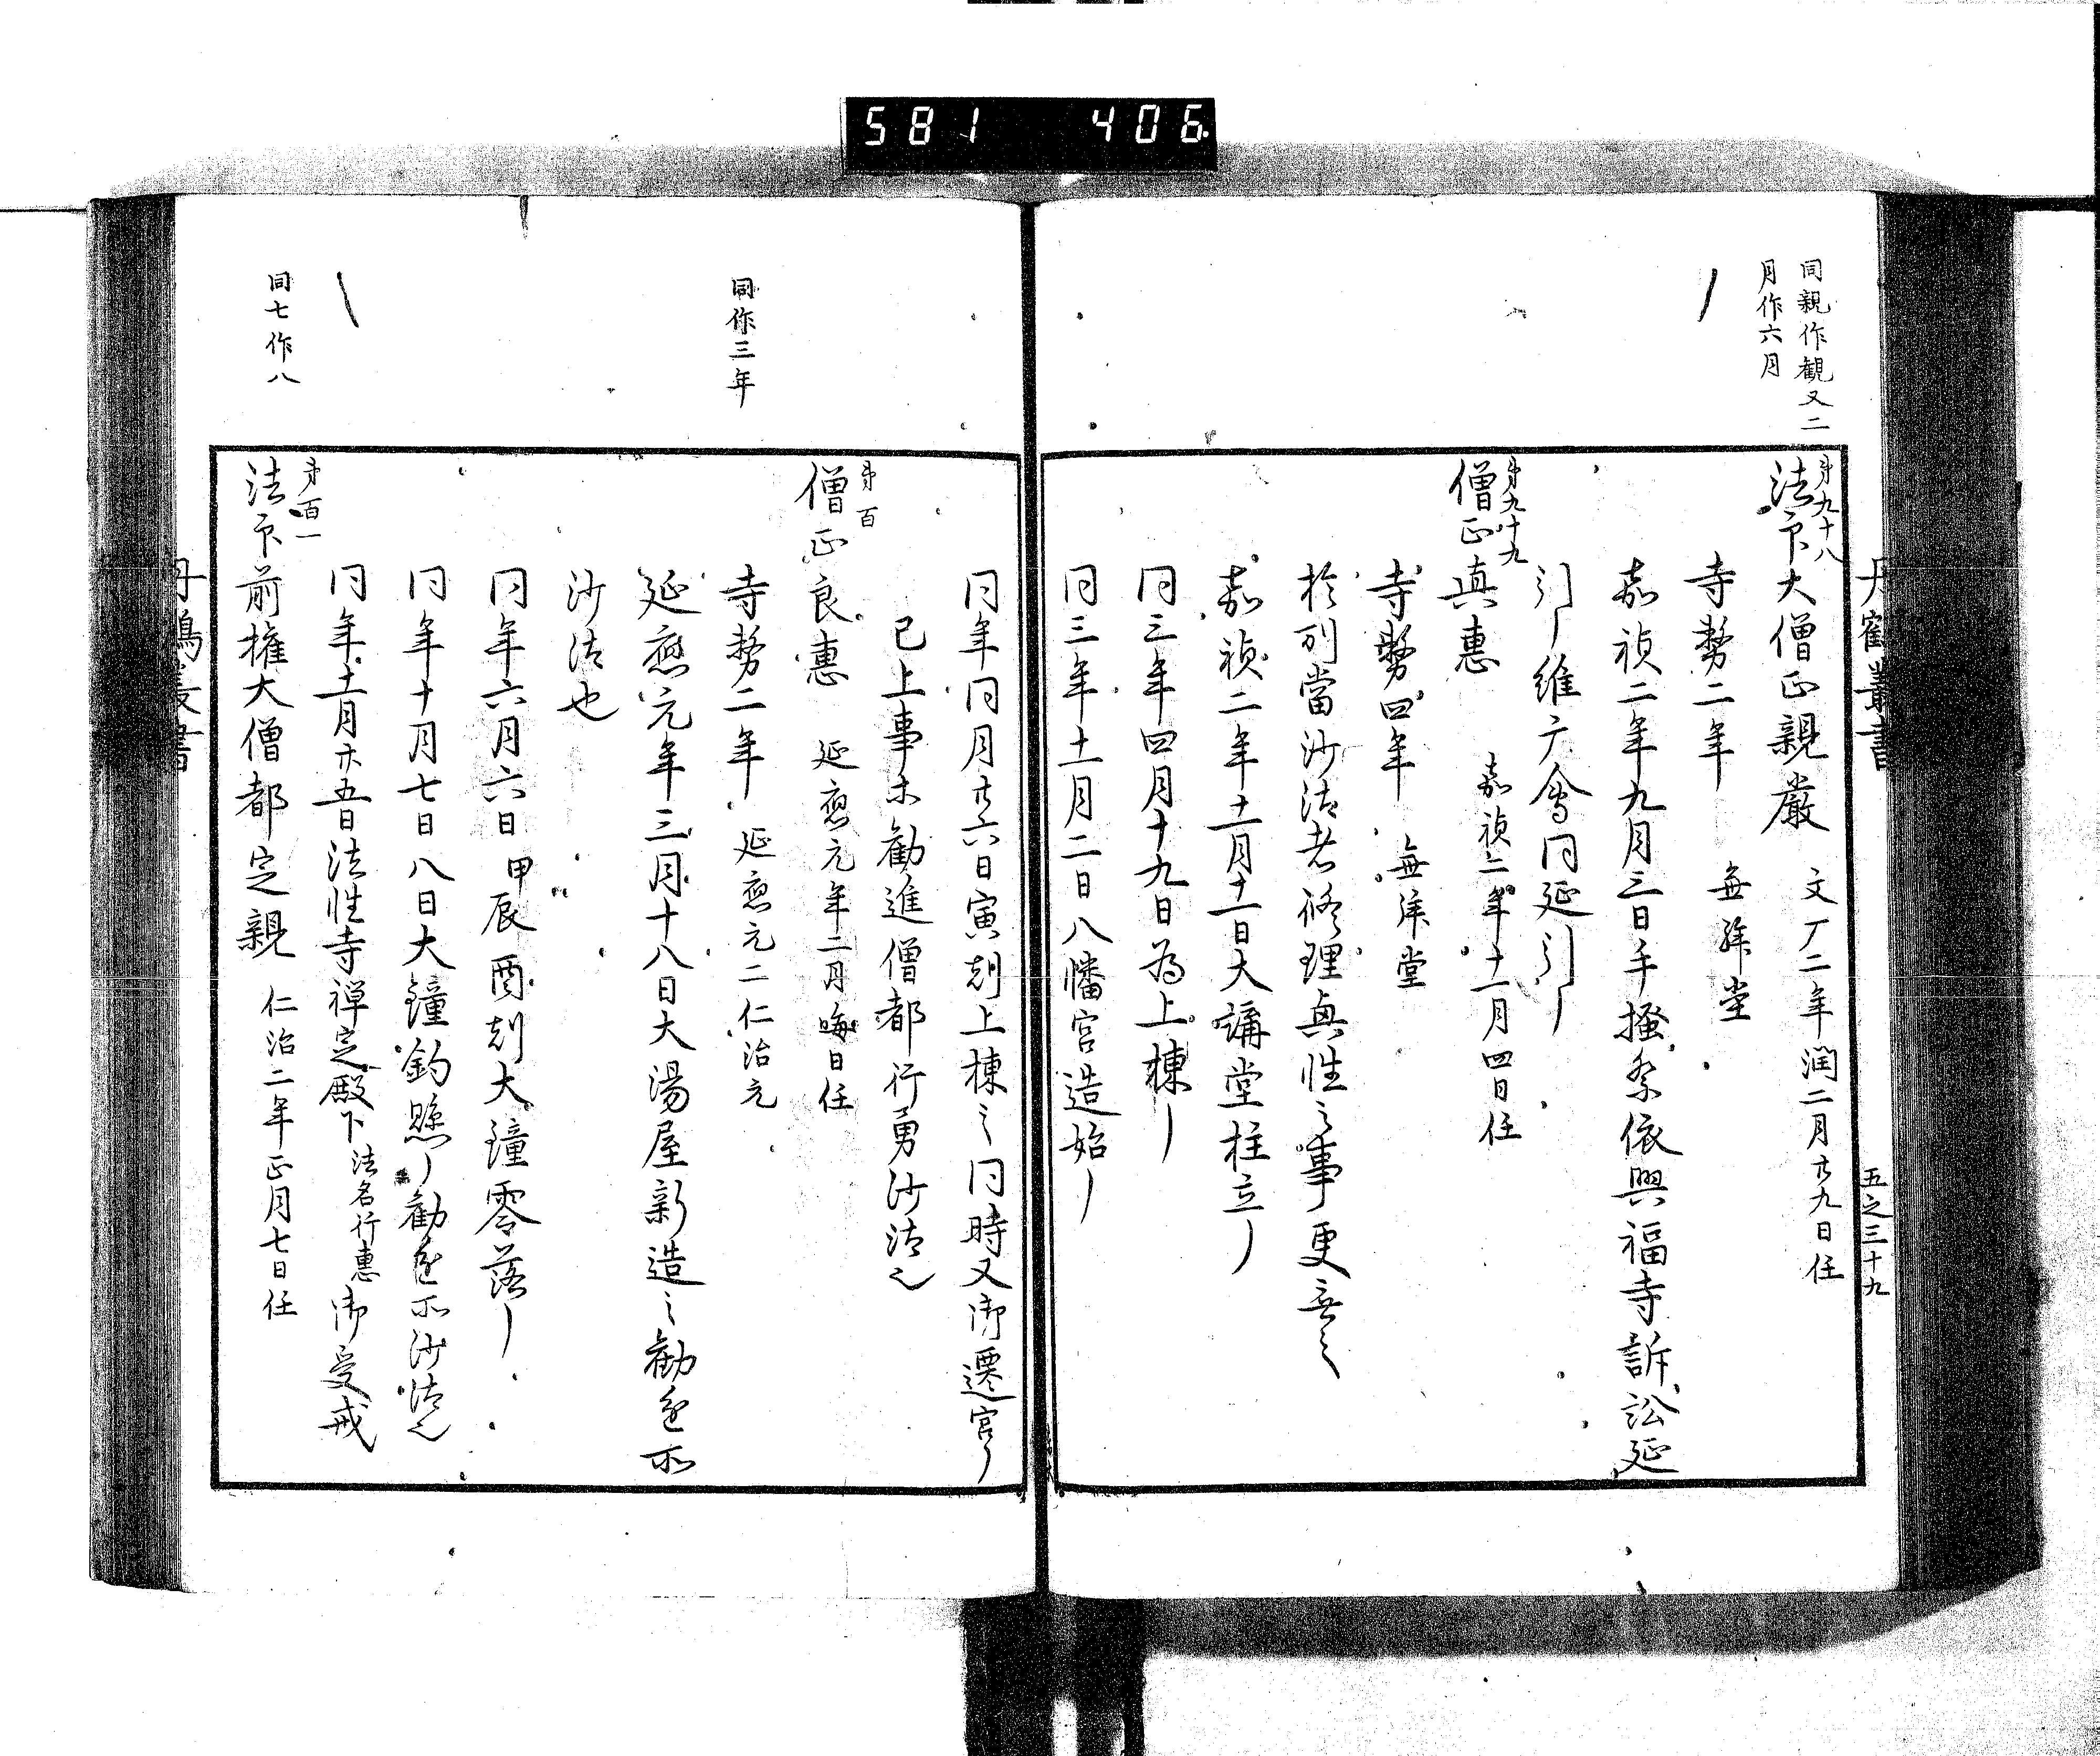 581 406
同親作観又二
月作六月
丹鶴叢書
五之三十九
第九十八
法印大僧正親嚴 文厂二年潤二月廿九日任
寺務二年 無拝堂
嘉禎二年九月三日手掻祭依興福寺訴訟延
引〳維广會同延引〳
第九十九
僧正真惠 嘉禎二年十一月四日任
寺務四年 無拝堂
於別當沙汰者修理真性之事更無之
嘉禎二年十一月十一日大講堂柱立〳
同三年四月十九日為上棟〳
同三年十一月二日八幡宮造始〳
同年同月廿六日寅剋上棟之同時又御遷宮〳
已上事等勧進僧都行勇沙汰之
同作三年
第百
僧正良惠 延應元年二月晦日任
寺務二年 延應元二仁治元
延應元年三月十八日大湯屋新造之勧進所
沙汰也
同年六月六日甲辰酉剋大鐘零落〳
同年十月七日八日大鐘釣懸〳勧進所沙汰之
同年十一月廿五日法性寺禅定殿下法名行惠御受戒
同七作八
第百一
法印前権大僧都定親 仁治二年正月七日任